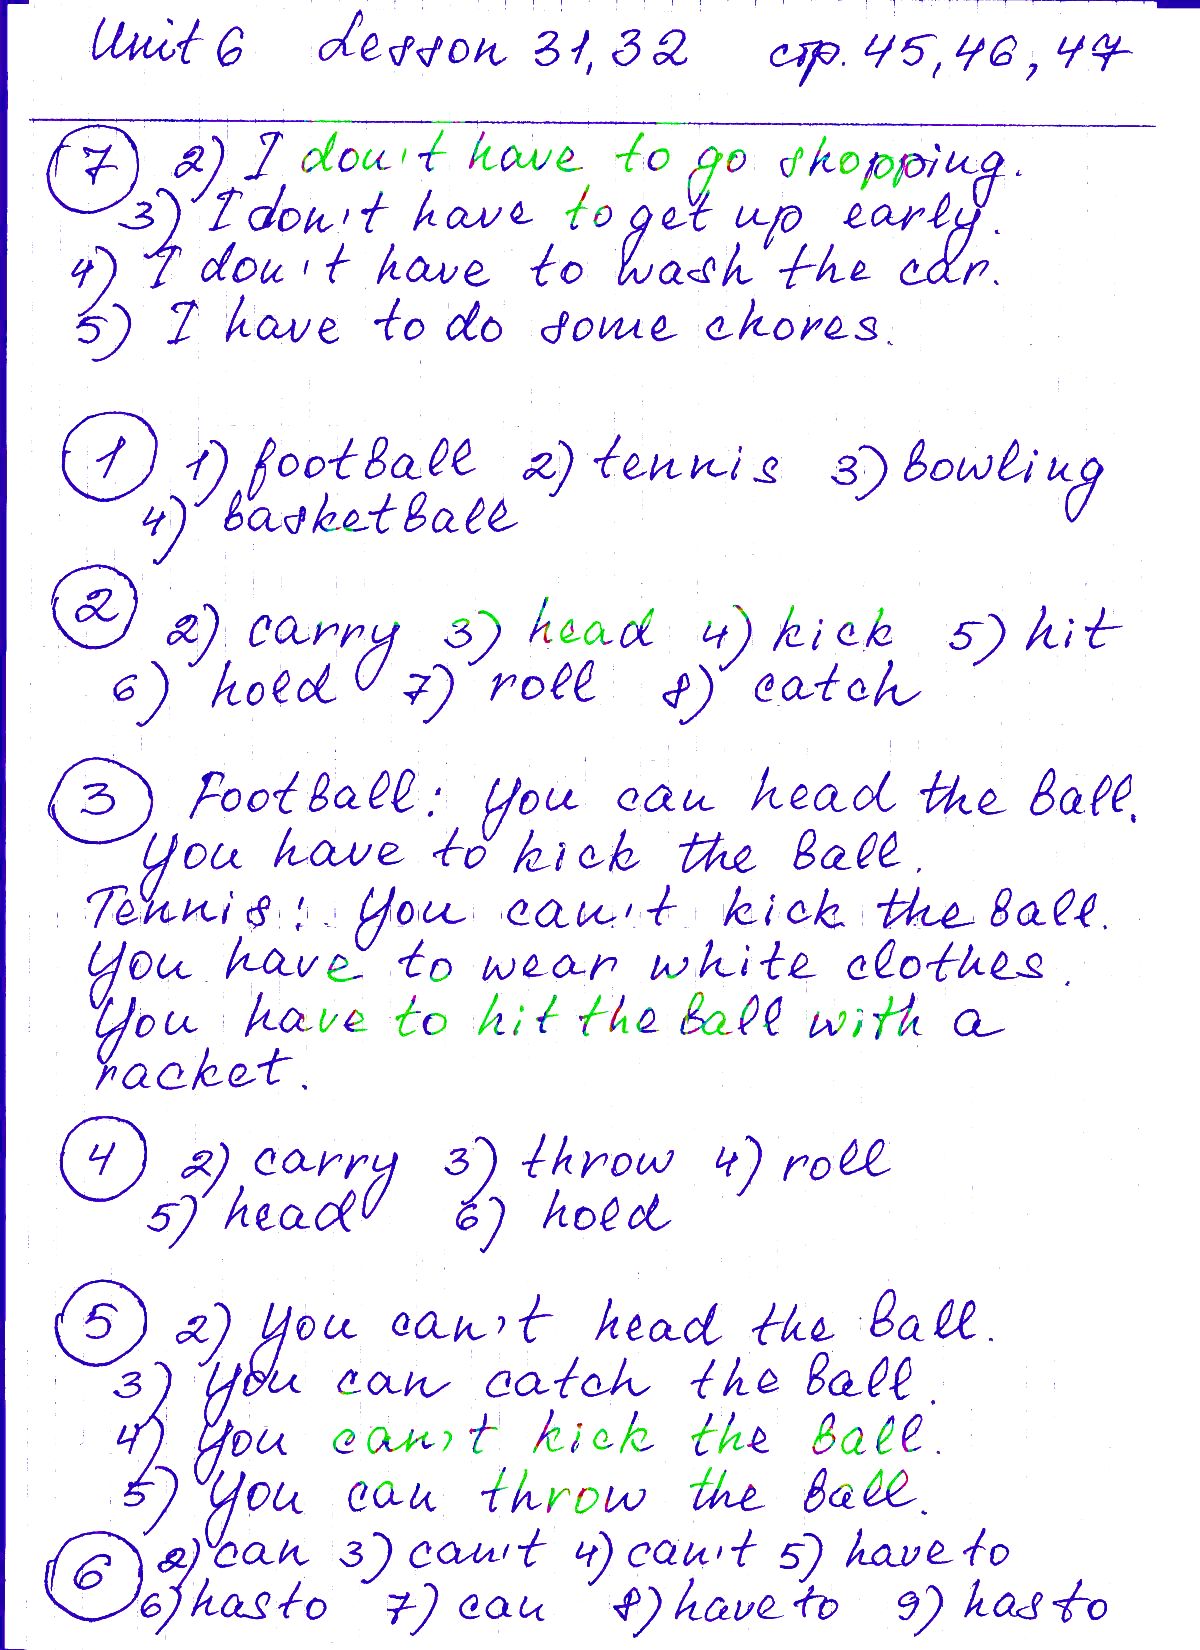 Unit 6 Lesson 31,32 стр. 45,46,47
7 2) I don't have to go shopping.
3) I don't have to get up early.
4) I don't have to wash the car.
5) I have to do some chores.
1 1) football 2) tennis 3) bowling
4) basketball
2 2) carry 3) head 4) kick 5) hit
6) hold 7) roll 8) catch
3 Football: You can head the ball.
You have to kick the ball.
Tennis: You can't kick the ball.
You have to wear white clothes.
You have to hit the ball with a
racket.
4 2) carry 3) throw 4) roll
5) head 6) hold
5 2) You can't head the ball.
3) You can catch the ball.
4) You can't kick the ball.
5) You can throw the ball.
6 2) can 3) can't 4) can't 5) have to
6) has to 7) can 8) have to 9) has to